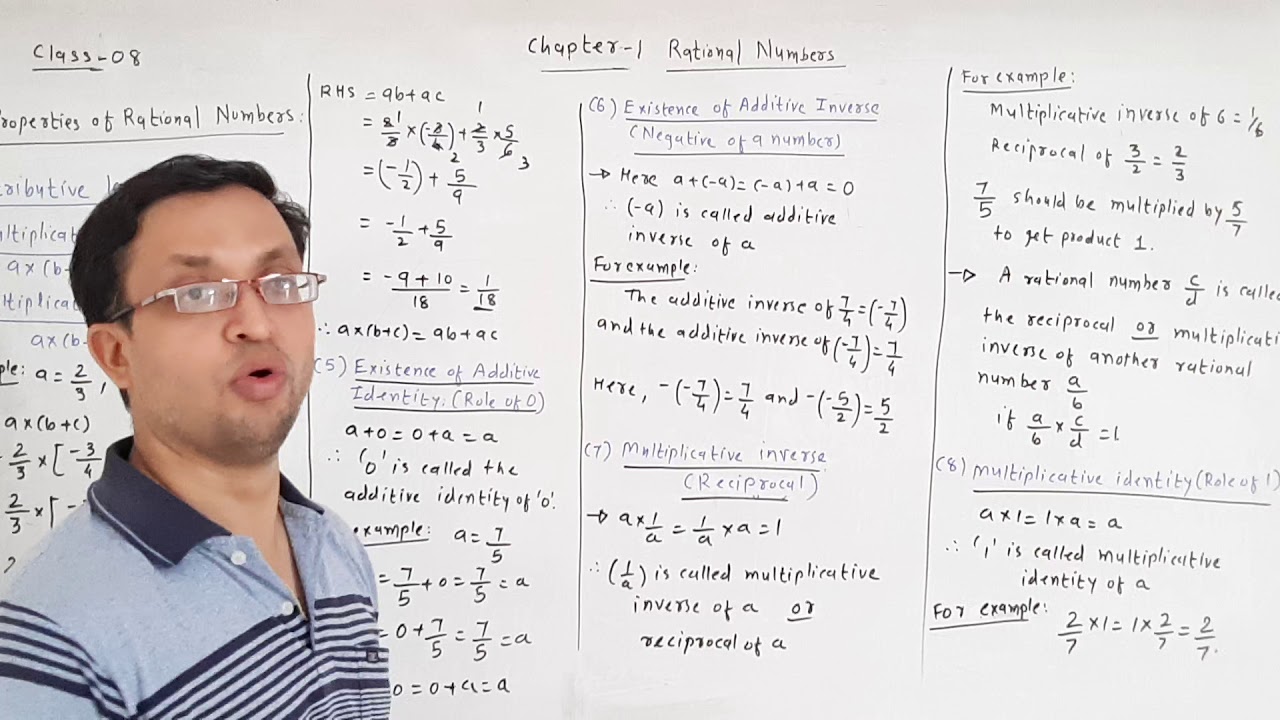 Class-08
Chapter-1 Rational Numbers
Properties of Rational Numbers:
a×(b
a×(b
a = 2/3,
a×(b+c)
2/3 × [-3/4
2/3 × [-
RHS = ab+ac
= 2/3 × (-3/4) + 2/3 × 5/6
= (-1/2) + 5/9
= -1/2 + 5/9
= -9+10/18 = 1/18
∴ a×(b+c) = ab+ac
(5) Existence of Additive
Identity. (Role of 0)
a+0=0+a=a
∴ '0' is called the
additive identity of '0'.
example: a = 7/5
= 7/5 + 0 = 7/5 = a
= 0 + 7/5 = 7/5 = a
0 = 0+a = a
(6) Existence of Additive Inverse
(Negative of a number)
→ Here a+(-a)=(-a)+a=0
∴ (-a) is called additive
inverse of a
For example:
The additive inverse of 7/4 = (-7/4)
and the additive inverse of (-7/4) = 7/4
Here, -(-7/4) = 7/4 and -(-5/2) = 5/2
(7) Multiplicative inverse
(Reciprocal)
→ a × 1/a = 1/a × a = 1
∴ (1/a) is called multiplicative
inverse of a or
reciprocal of a
For example:
Multiplicative inverse of 6 = 1/6
Reciprocal of 3/2 = 2/3
7/5 should be multiplied by 5/7
to get product 1.
→ A rational number c/d is called
the reciprocal or multiplicati
inverse of another rational
number a/b
if a/b × c/d = 1
(8) multiplicative identity (Role of 1)
a×1=1×a=a
∴ '1' is called multiplicative
identity of a
For example:
2/7 × 1 = 1 × 2/7 = 2/7.